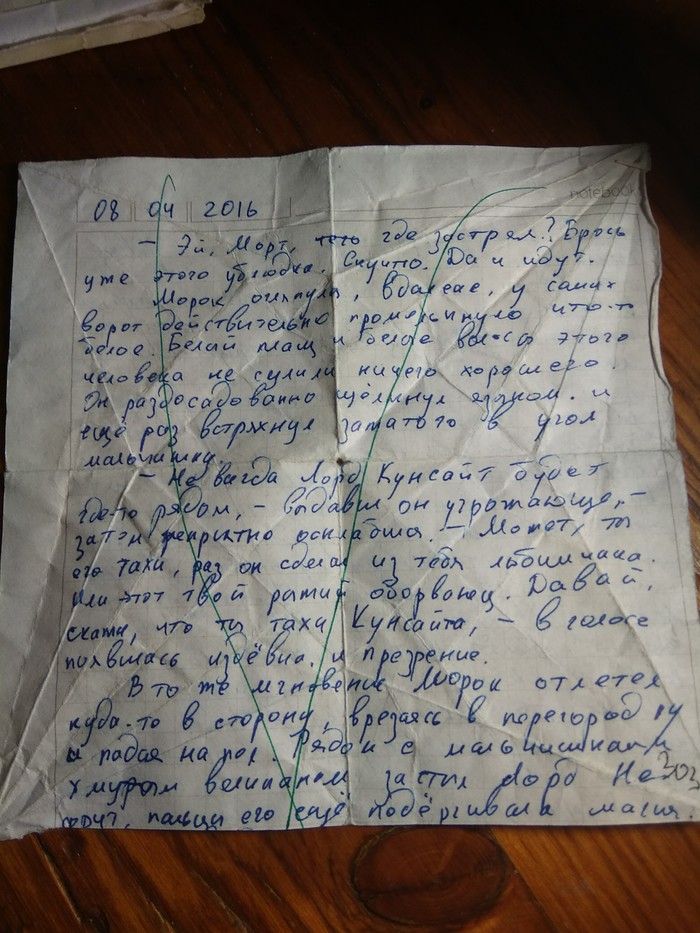 notebook
08 04 2016
– Эй, Морт, чего где застрял? Брось
уже этого ублюдка. Скучно. Да и идут.
Морок оглянулся, вдалеке, у самих
ворот действительно промелькнуло что-то
белое. Белый плащ и белые волосы этого
человека не сулили ничего хорошего.
Он раздосадованно щёлкнул языком и
ещё раз встряхнул зажатого в угол
мальчишку.
– Не всегда Лорд Кунсайт будет
где-то рядом, – выдавил он угрожающе, –
затем неприятно осклабился. – Может, ты
его тахи, раз он сделал из тебя любимчика.
Или этот твой рыжий оборванец. Давай,
скажи, что ты тахи Кунсайта, – в голосе
появилась издёвка и презрение.
В то же мгновение Морок отлетел
куда-то в сторону, врезаясь в перегородку
и падая на пол. Рядом с мальчишками
хмурым великаном застыл Лорд Не
фрит, пальцы его ещё подёргивала магия.